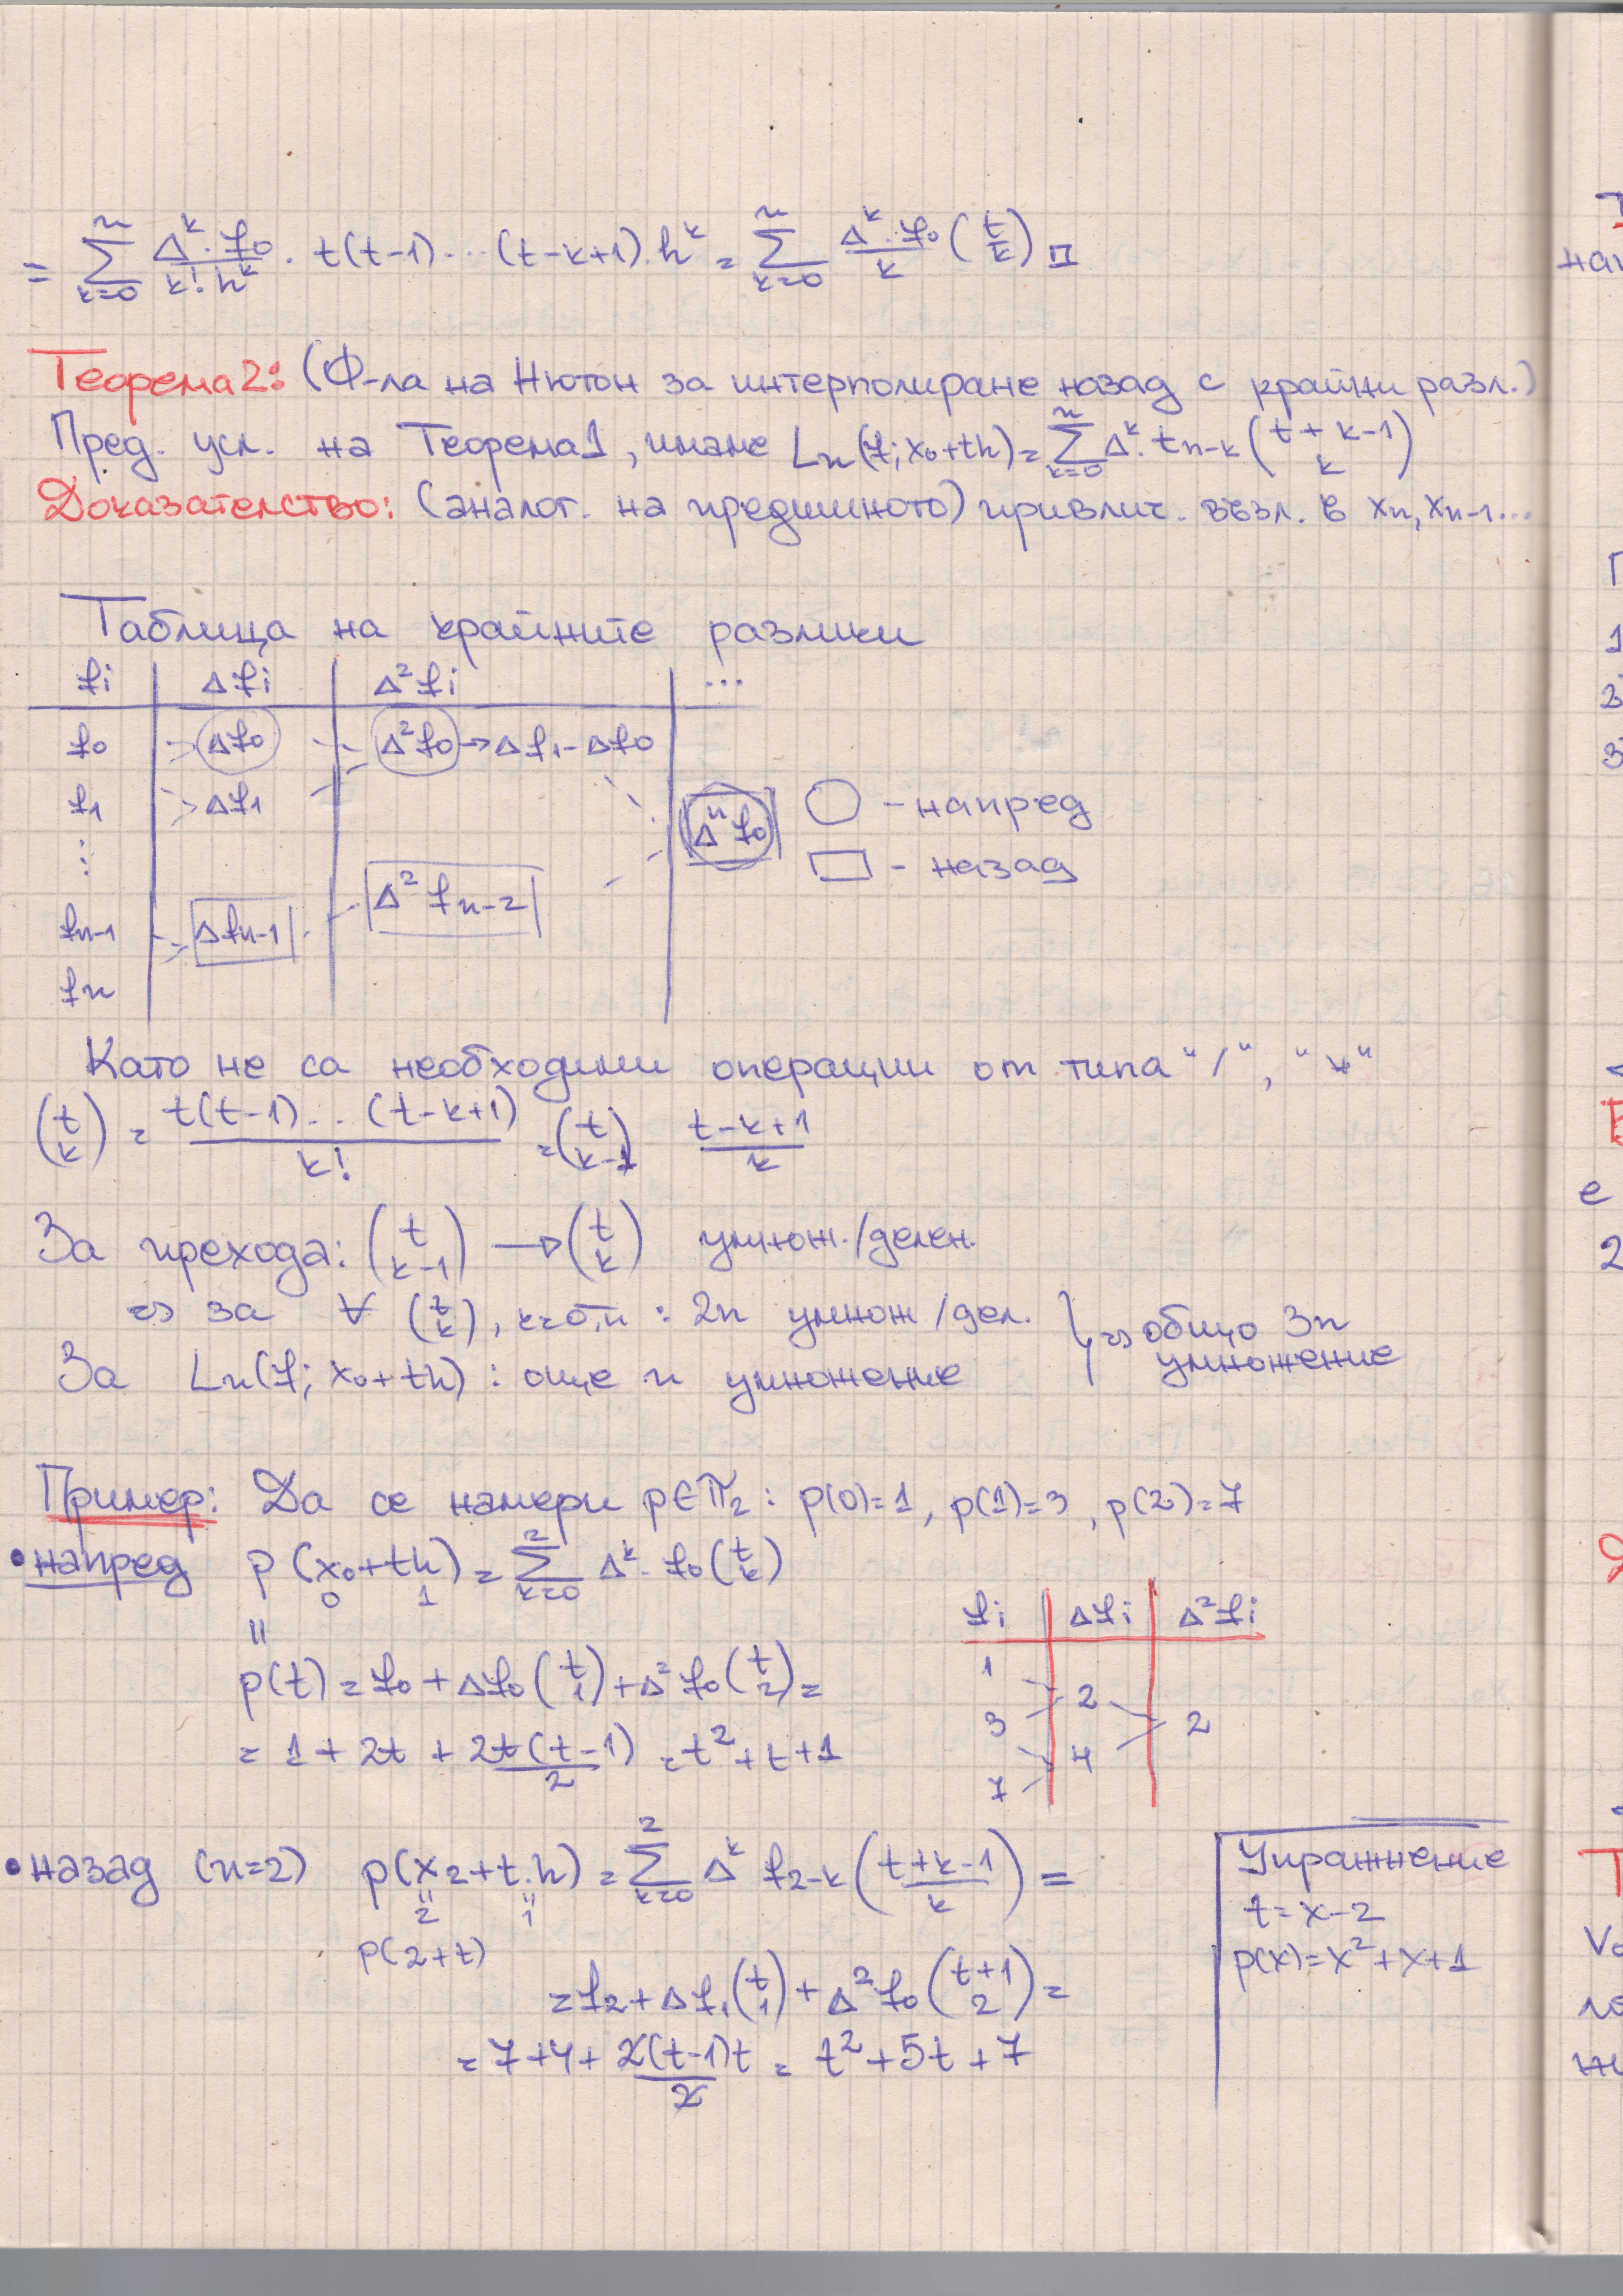 = ∑_{k=0}^{n} Δ^k.f₀/(k! h^k) . t(t-1)...(t-k+1).h^k = ∑_{k=0}^{n} Δ^k.f₀/k (t k) □
Теорема 2: (Ф-ла на Нютон за интерполиране назад с крайни разл.)
Пред. усл. на Теорема 1, имаме Lₙ(f; x₀+th) = ∑_{k=0}^{n} Δ^k. t_{n-k} (t+k-1 k)
Доказателство: (аналог. на предишното) привлич. възл. в xₙ, xₙ₋₁...
Таблица на крайните разлики
fi | Δfi | Δ²fi | ...
f₀ Δf₀ Δ²f₀ → Δf₁-Δf₀
f₁ Δf₁
Δⁿf₀ ○ - напред
⋮ □ - назад
fₙ₋₁ Δfₙ₋₁ Δ²fₙ₋₂
fₙ
Като не са необходими операции от типа "/", "*"
(t k) = t(t-1)...(t-k+1)/k! = (t k-1) (t-k+1)/k
За прехода: (t k-1) → (t k) умнож./делен.
=> за ∀ (t k), k=0,n : 2n умнож/дел. } => общо 3n умножение
За Lₙ(f; x₀+th) : още n умножение
Пример: Да се намери p∈π₂ : p(0)=1, p(1)=3, p(2)=7
• напред p(x₀+th) = ∑_{k=0}^{2} Δ^k. f₀ (t k)
0 1
||
fi | Δfi | Δ²fi
1
3 2 2
7 4
p(t) = f₀ + Δf₀ (t 1) + Δ²f₀ (t 2) =
= 1 + 2t + 2t(t-1)/2 = t² + t + 1
• назад (n=2) p(x₂+t.h) = ∑_{k=0}^{2} Δ^k f_{2-k} ((t+k-1)/k) =
|| ||
2 1
p(2+t)
= f₂ + Δf₁ (t 1) + Δ²f₀ (t+1 2) =
= 7+4+ 2(t-1)t/2 = t² + 5t + 7
Упражнение
t = x-2
p(x) = x² + x + 1